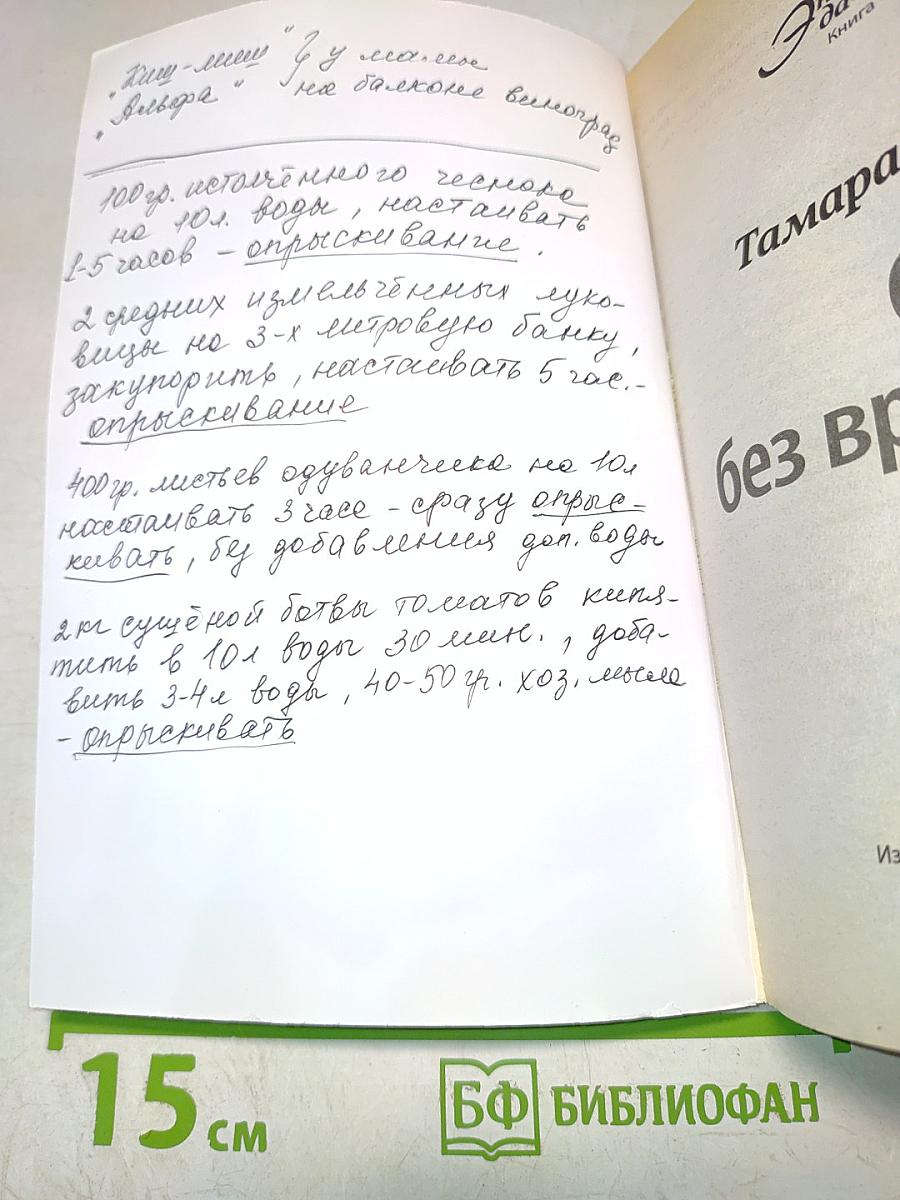 „Киш-миш"
„Альфа"
} у мамы
на балконе виноград
100гр. истолчённого чеснока
на 10л. воды, настаивать
1-5 часов - опрыскивание.
2 средних измельчённых луко-
вицы на 3-х литровую банку,
закупорить, настаивать 5 час.-
опрыскивание
400гр. листьев одуванчика на 10л
настаивать 3 часа - сразу опрыс-
кивать, без добавления доп. воды
2кг сущёной ботвы томатов кипя-
тить в 10л воды 30 мин., доба-
вить 3-4л воды, 40-50гр. хоз. мыла
- опрыскивать
Книга
Тамара
без вр
Из
15 см
БФ БИБЛИОФАН